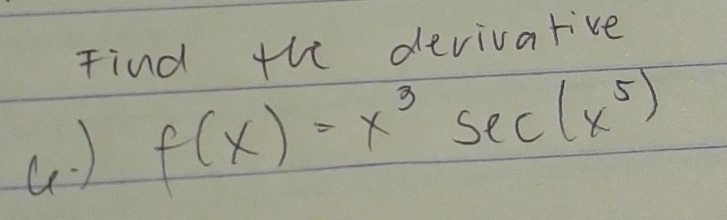 Find the derivative
4.) f(x) = x³ sec(x⁵)